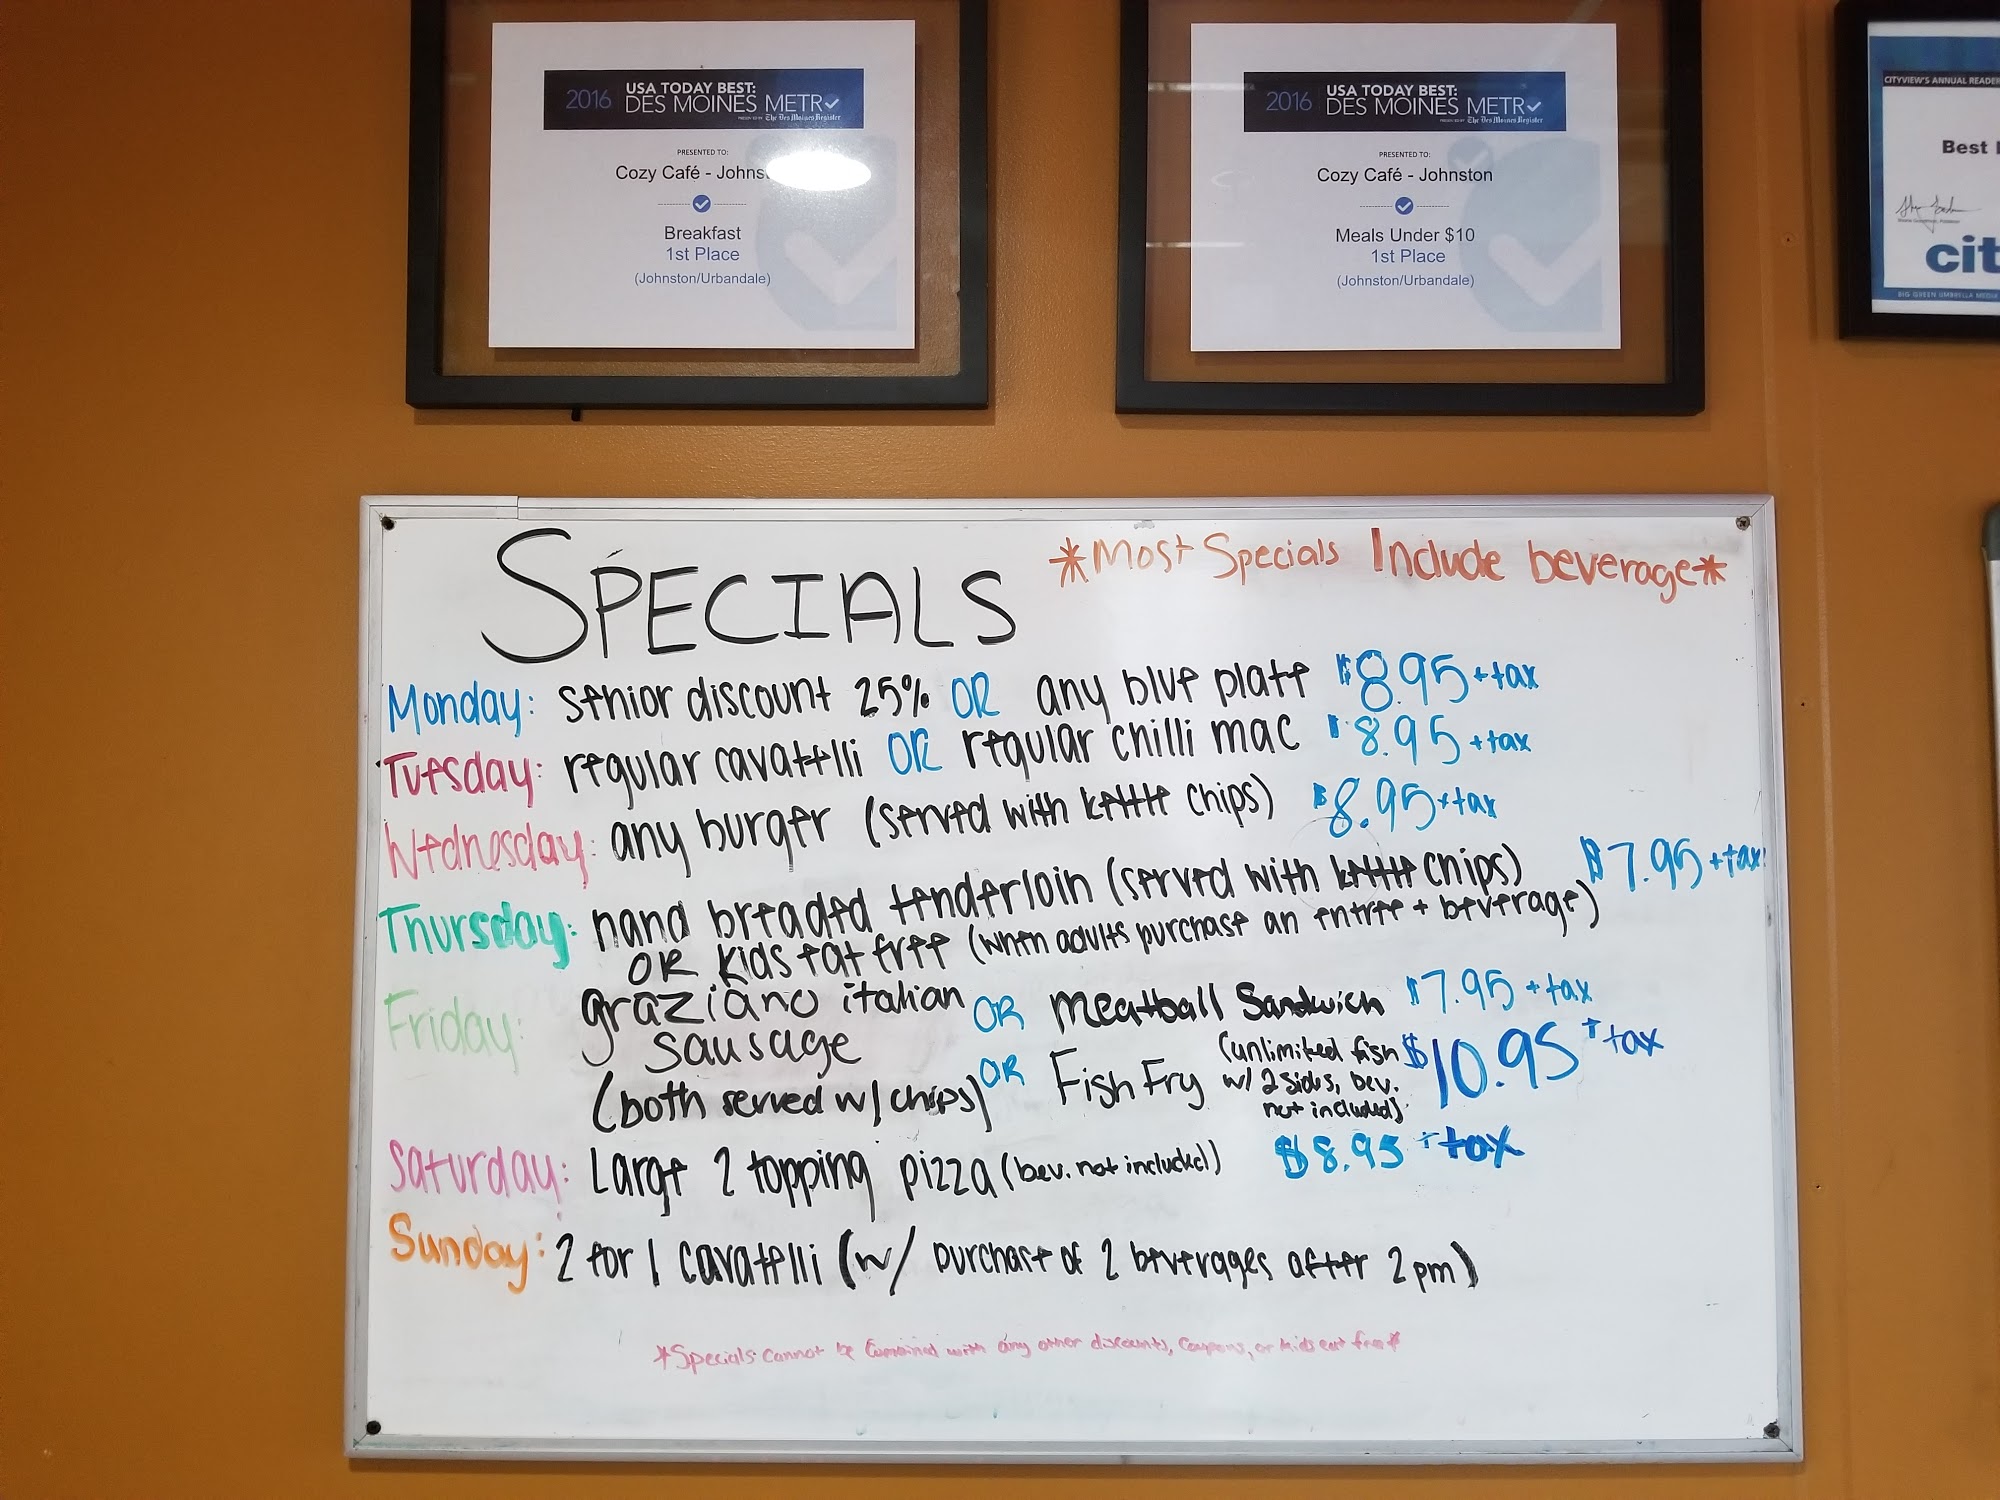 2016 USA TODAY BEST:
DES MOINES METRO
PRESENTED BY The Des Moines Register
PRESENTED TO:
Cozy Café - Johnst
Breakfast
1st Place
(Johnston/Urbandale)
2016 USA TODAY BEST:
DES MOINES METRO
PRESENTED BY The Des Moines Register
PRESENTED TO:
Cozy Café - Johnston
Meals Under $10
1st Place
(Johnston/Urbandale)
CITYVIEW'S ANNUAL READER
Best
cit
BIG GREEN UMBRELLA MEDIA
SPECIALS
*Most Specials Include beverage*
Monday: senior discount 25% OR any blue plate $8.95 + tax
Tuesday: regular cavatelli OR regular chilli mac $8.95 + tax
Wednesday: any burger (served with kettle chips) $8.95 + tax
Thursday: hand breaded tenderloin (served with kettle chips) $7.95 + tax
OR kids eat free (when adults purchase an entree + beverage)
Friday: graziano italian sausage OR Meatball Sandwich $7.95 + tax
(both served w/ chips) OR Fish Fry (unlimited fish w/ 2 sides, bev. not included) $10.95 + tax
Saturday: Large 2 topping pizza (bev. not included) $8.95 + tax
Sunday: 2 for 1 cavatelli (w/ purchase of 2 beverages after 2pm)
*Specials cannot be combined with any other discounts, coupons, or kids eat free*